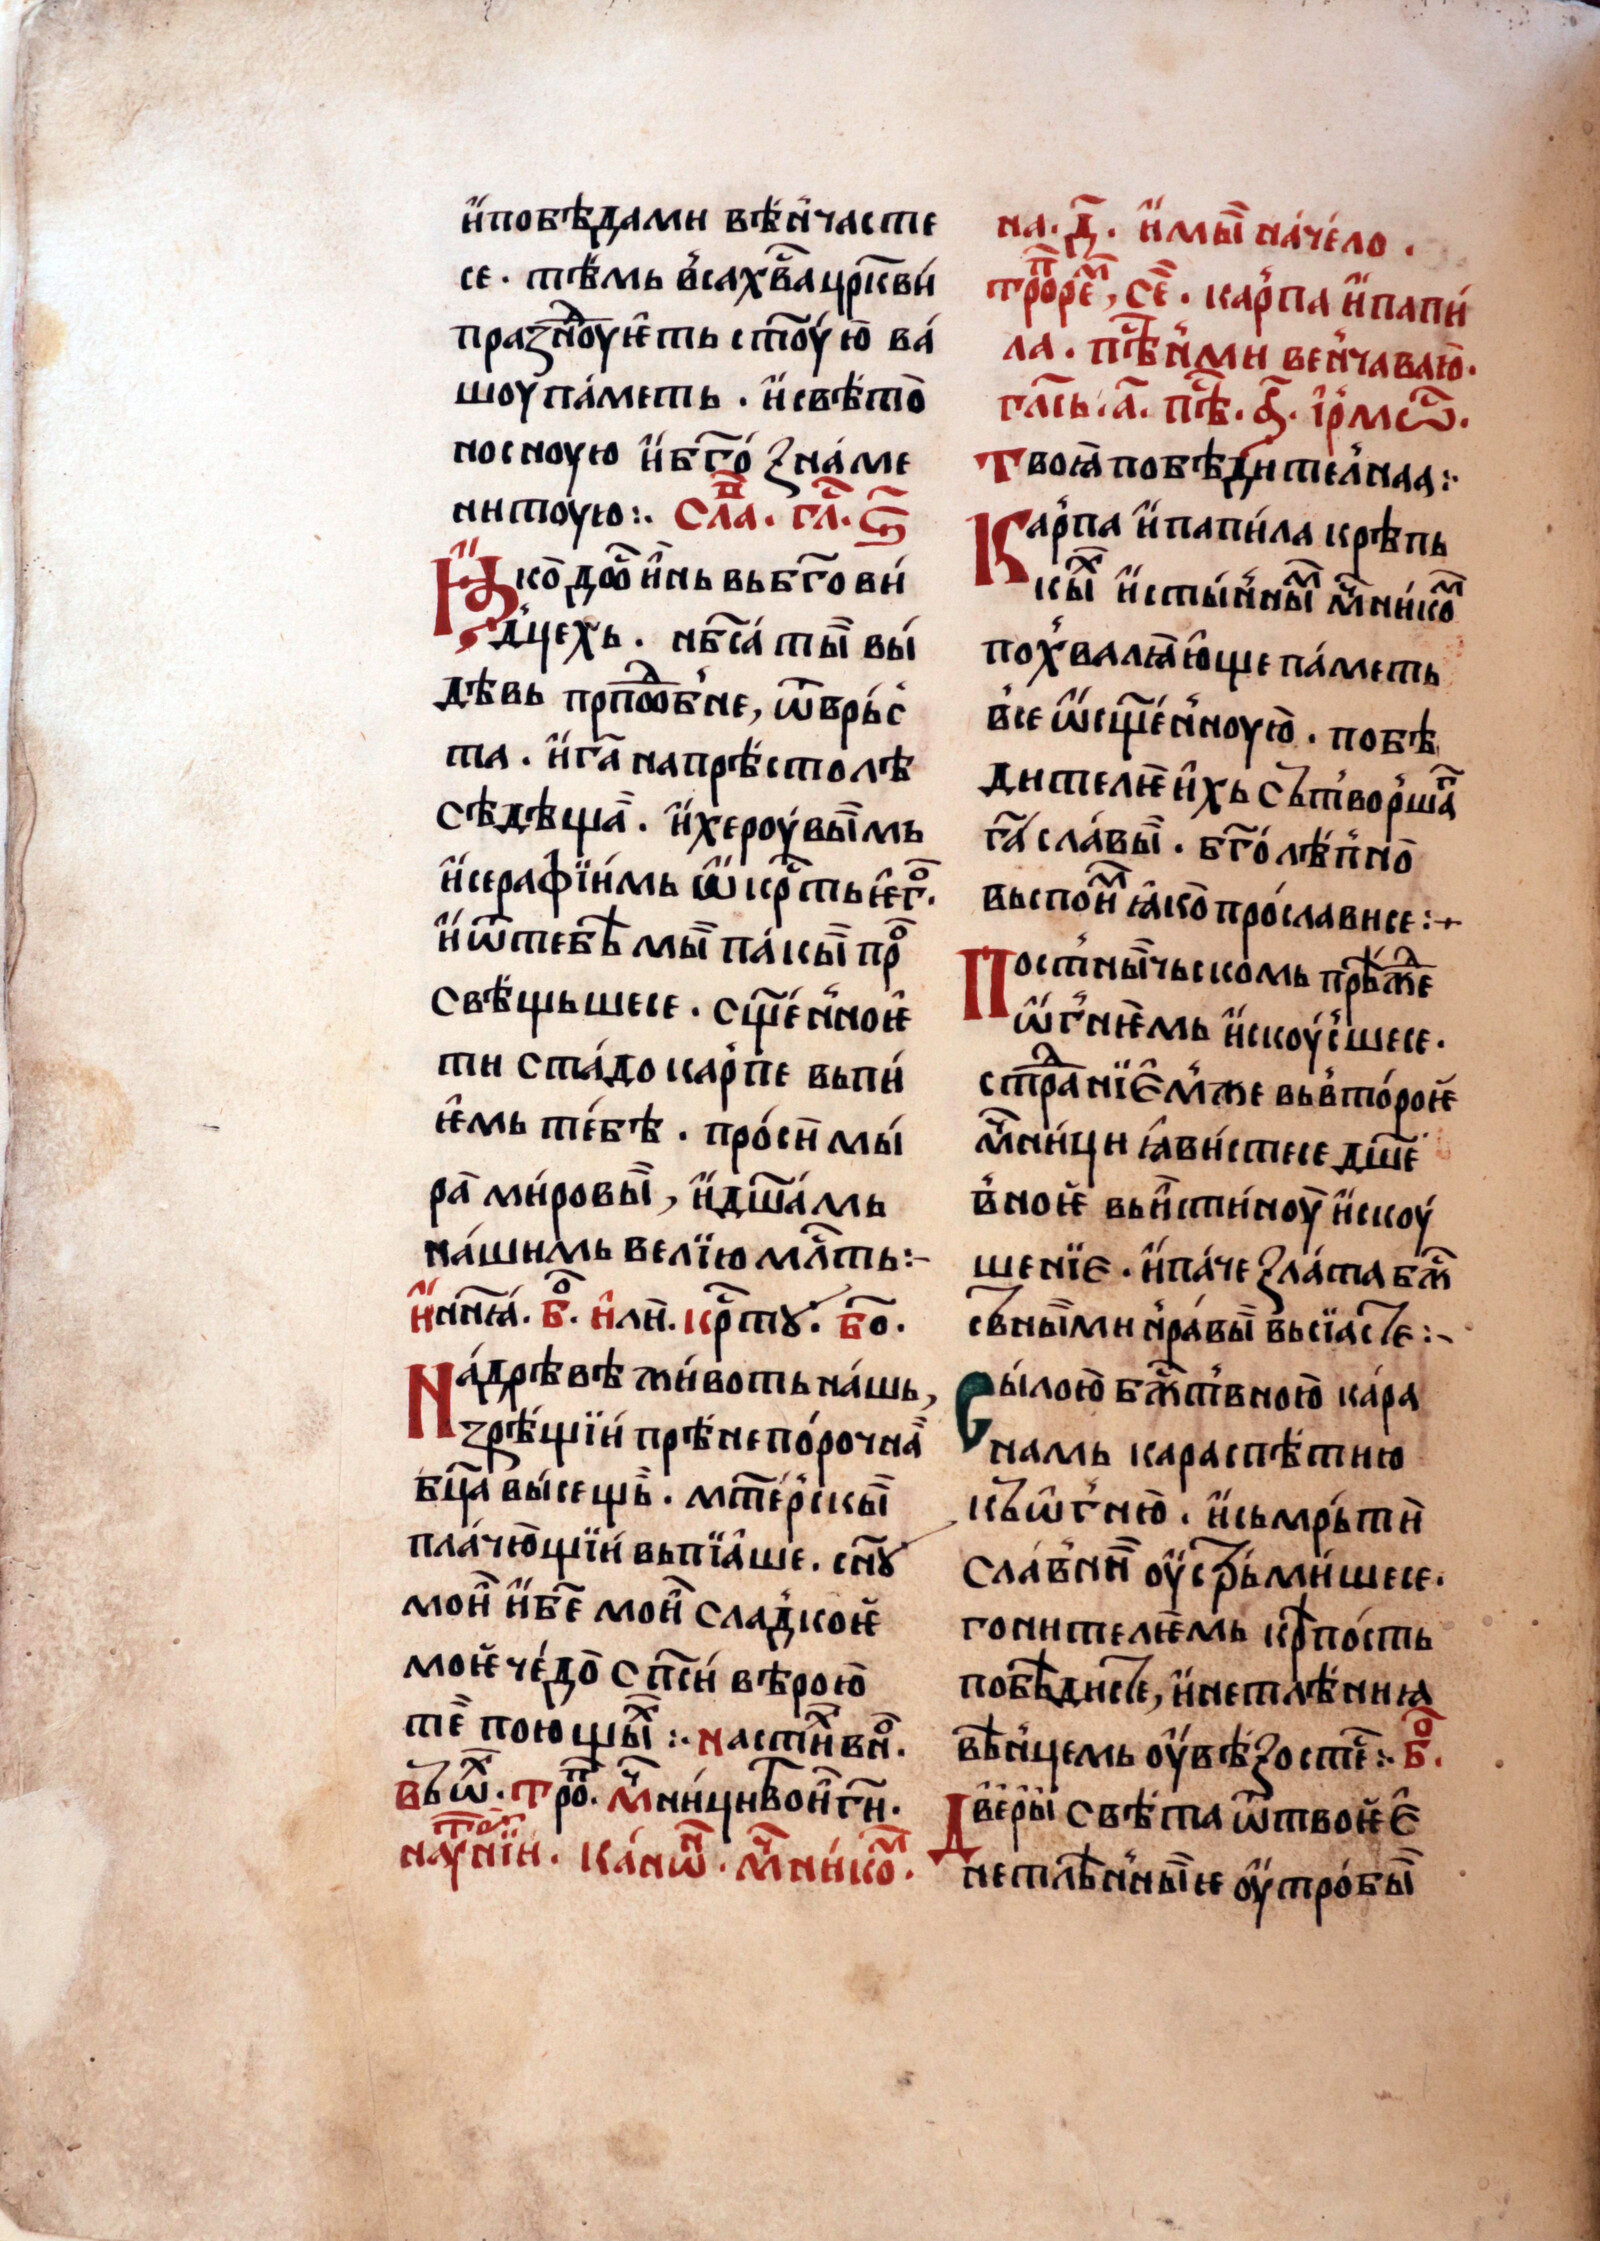 и҆побѣ́дами вѣн҆часте
се · тѣ́мь в҆са хв҃а цр҃кви
празⷣноуѥть ст҃оую ва́
шоу па́меть · и҆ свѣ́то
носноую и҆ бг҃о зна́ме
нитоую:· Сла · гл҃ · ѕ҃
Ꙗ҆ко дꙋ҆инь вь бг҃ови́
д҆цехь · нб҃са́ ты̀ вы́
дѣвь прпⷣоб҆не, ѿврь́с
та · и҆ га҃ на прѣ́столѣ
сѣдѣща̀ · и҆ хероувы́мь
и҆ серафїи́мь ѡ҆кр҃ть ѥго ·
и҆ ѿ тебѣ̀ мы̀ па́кы про
свѣ́щьшесе · сщ҃е́н҆ноѥ
ти ста́до ка́рпе вьпи́
ѥмь те́бѣ · про́си мы́
ра̀ ми́ровы̀, и҆ дш҃а́мь
на́шимь велїю мл҃ть:~
И҆ нн҃ꙗ · бо҃ · и҆ли · кр҃ту · бо҃ ·
На́ дрѣвѣ жи́воть на́шь,
зрѣ́щїи прѣ́непо́рочна̀
бц҃а вы́сещь · мт҃е́рскы̀
пла́чющїи вьпїа́ше · сн҃ꙋ
мои̇ и҆ бе҃ мои̇ сла́дкоѥ
моѥ че́до сп҃си вѣ́рою
те̇ поющыⷯ:· на стиⷯвноⷡ ·
вь ѡⷯ · троⷫ · мч҃ници твои̇ ги҃ ·
на оутрⷬнїи · ка́нѡⷩ · мч҃ни́коⷨ ·
на · д҃ · и҆мы̀ на́чело ·
троⷫреⷨ, се̇ · ка́рпа и҆ папи́
ла · пѣ́с҃н҆ми вен҆чаваю ·
гла́сь · а҃ · пѣⷭ · а҃ · їрмѡⷭ ·
Твоꙗ побѣ́дител҆наа:·
Ка́рпа и҆ папи́ла крѣпь
кыⷯ и҆сты́н҆ныⷨ мч҃нико́ⷨ
пох҆валꙗ́юще па́меть
в҆се ѡ҆сщ҃е́н҆ноую · побѣ
дителѥ и҆хь сьт҆во́рша
га҃ сла́вы̀ · бг҃олѣ́п҆но
вьспоиⷨ ꙗ҆ко про́слависе:~
Пост҆ны́чьскомь прѣⷤде
ѡ҆г҆нѥмь и҆скоус҆шесе ·
страⷣнїѥⷨже вьв҆то́роѥ
мч҃ни́ци ꙗ҆ви́стесе дш҃е
в҆ноѥ вьи́стиноу и҆скоу
шенїѥ · и҆ па́че зла́та бжⷭ
ствны́ми н҆ра́вы вьсїасте:~
Сы́лою бжⷭт҆вною ка́ра
намь ка распѣтию
кь ѡ҆г҆ню · и҆ сьмрь́ти
сла́в҆нн̀ оу҆стрьми́шесе ·
гонителѥмь крⷬпо́сть
побѣ́дисте, и҆ нетлѣ́ниꙗ
вѣн҆цемь оу҆вѣ́зостесе:· бо҃ ·
Две́ры свѣ́та ѿ твоѥѥ
нетлѣн҆ны́ѥ оу҆тро́бы̀